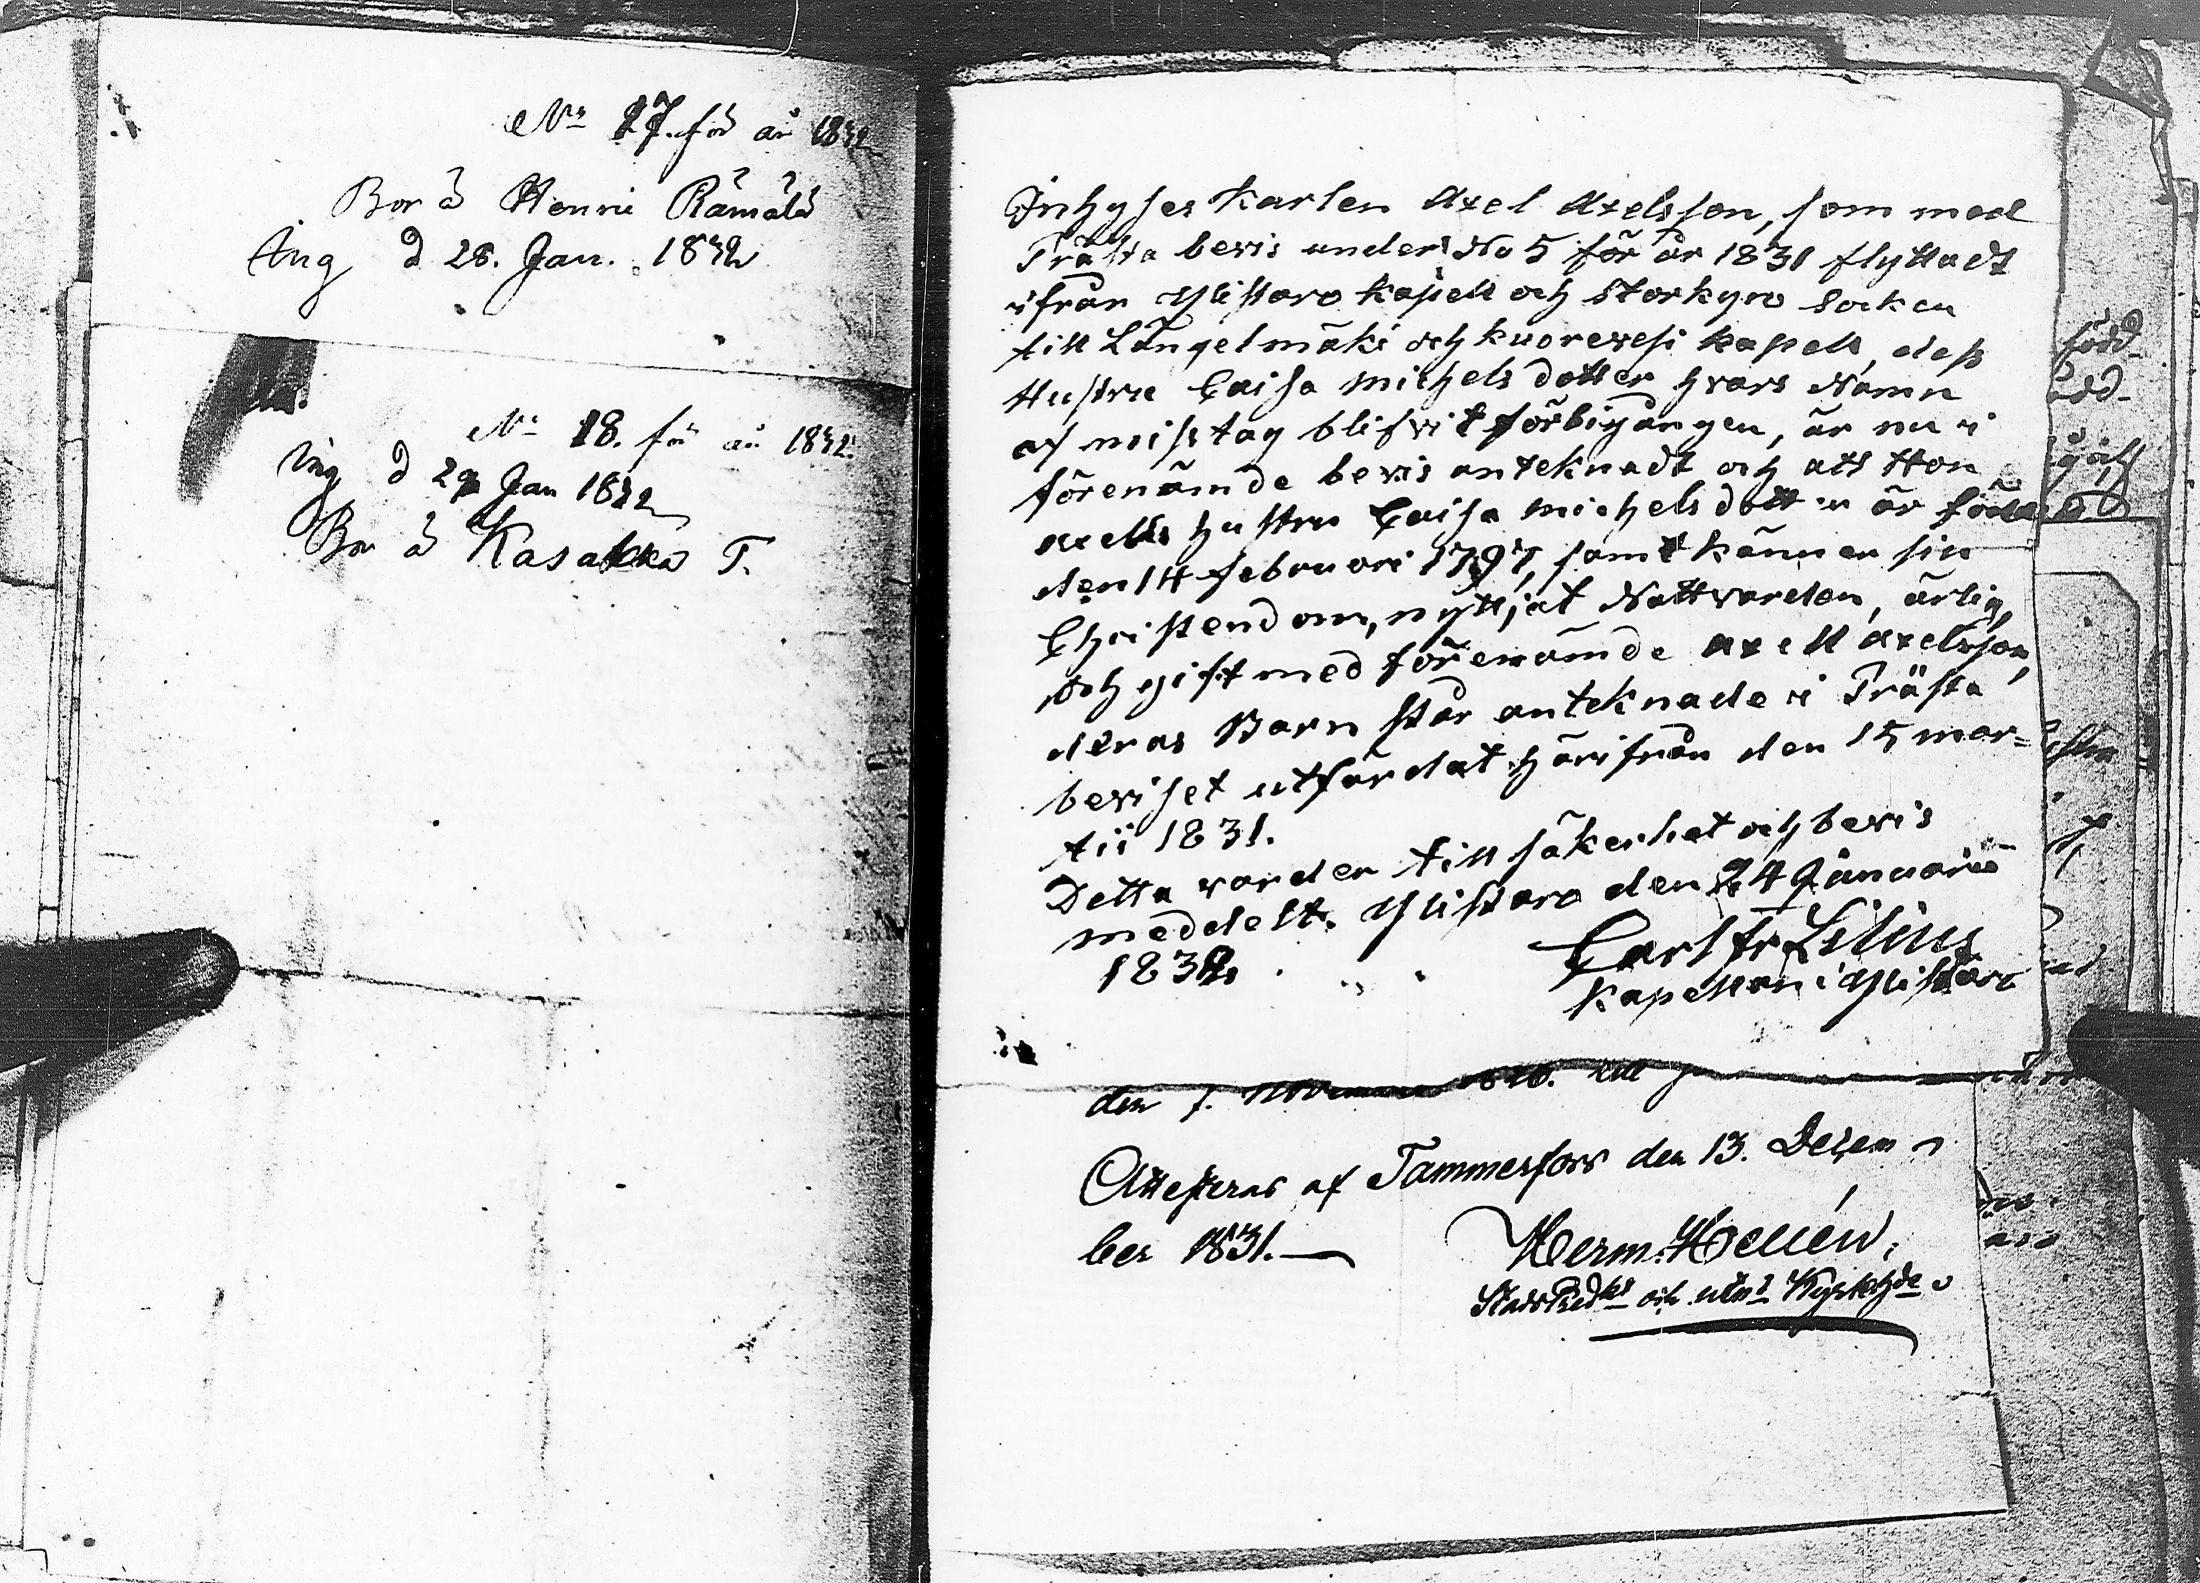 No 17. för år 1832
Bor å Honni Rämälä
Ing d 28. Jan. 1832
No 18. för år 1832.
Ing d 29 Jan 1832
Bor å Kasakka T.
Inhyses Karlen Axel Axelsson, som med
Prästa bevis under No 5 för år 1831 flyttadt
ifrån Ylistaro Kapell och Storkyro Socken
till Längelmäki och Kuorevesi Kapell, dess
Hustru Caisa Michels dotter hvars Namn
af misstag blifvit förbigången, är nu i
förenämde bevis anteknadt och att Hon
Axells hustru Caisa Michels dotter är född
den 14 februari 1797, samt känner sin
Christendom, nyttjat Nattvarden, ärlig,
och gift med förenämde Axell Axelsson,
deras Barn står anteknade i Prästa
beviset utfärdat härifrån den 15 mar=
tii 1831.
Detta varder till säkerhet och bevis
meddelt. Ylistaro den 24 Januarii
1832.
Carl Fr Lilius
Kapellan i Ylistaro
den 7.
Attesteras af Tammerfors den 13. Decem
ber 1831.
Herm. Hellén,
StadsPred och